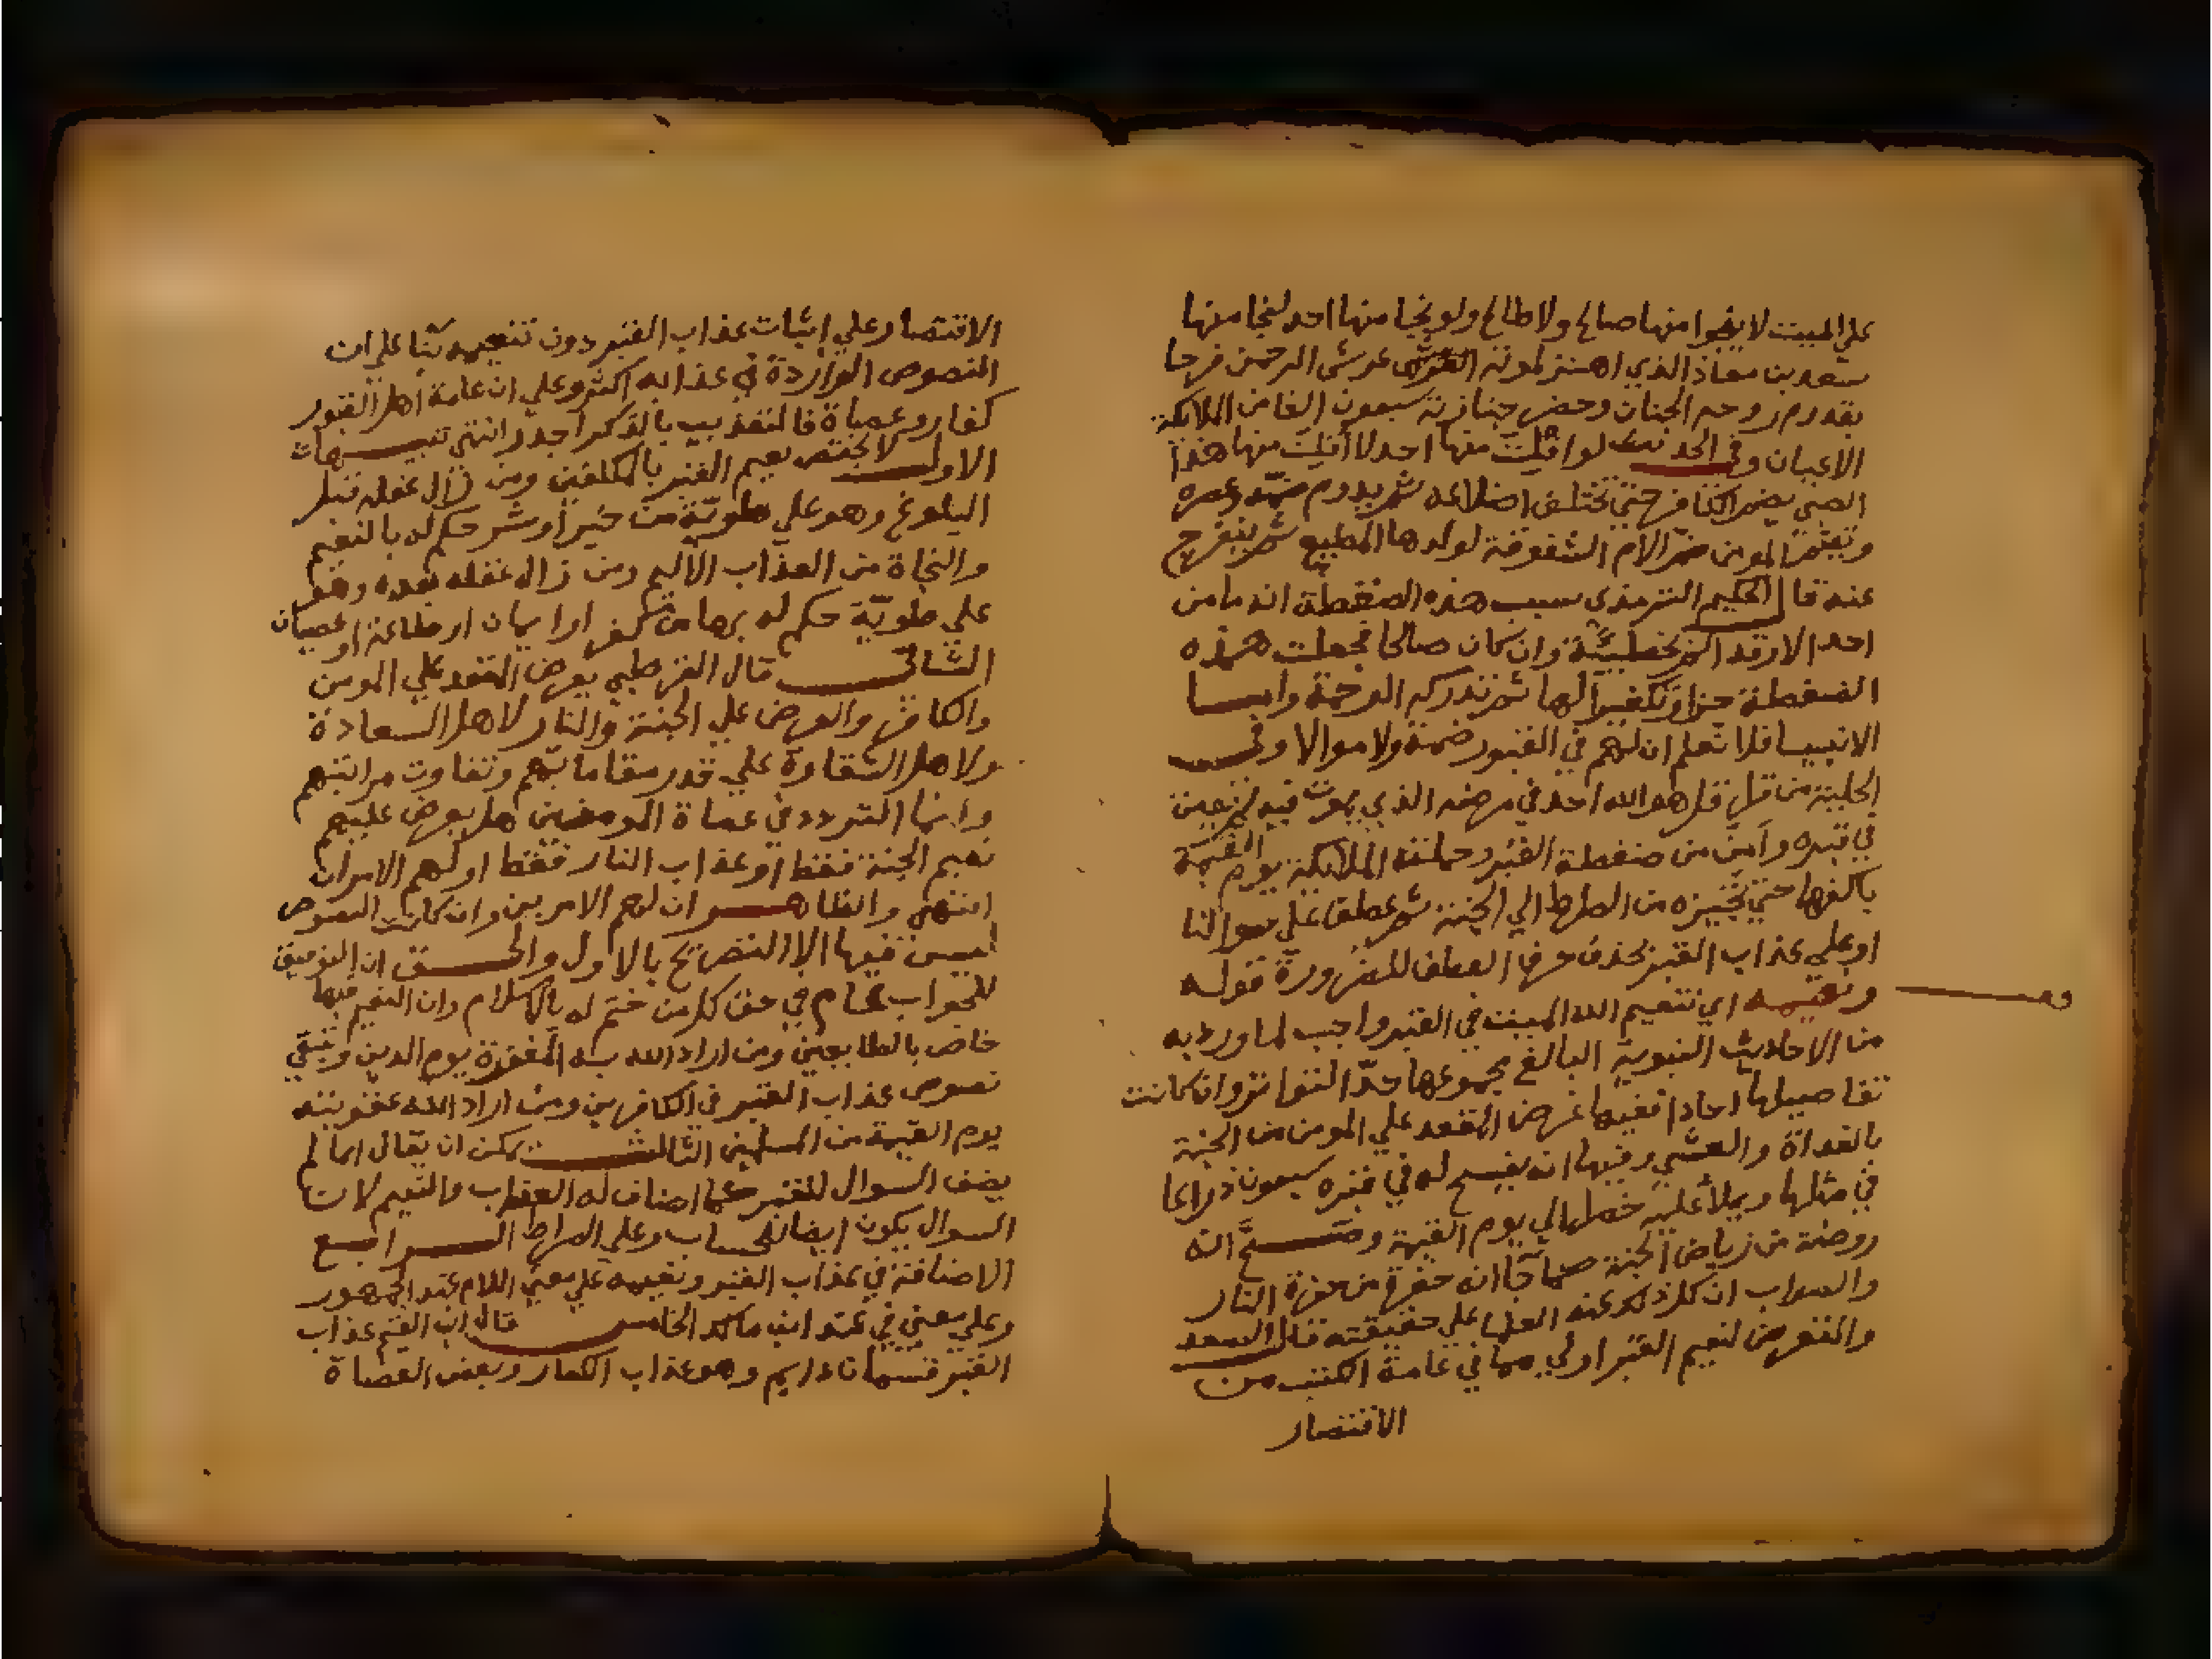 على الميت لا ينجوا منها صالح ولا طالح ولو نجا منها احد لنجا منها
سعد بن معاذ الذي اهتز لموته عرش الرحمن فرحا
بقدوم روحه الجنان وحضر جنازته سبعون الفا من الملايكة
الاعيان وفي الحديث لو افلت منها احد لا افلت منها هذا
الصبي يضم الكافر حتي تختلف اضلاعه ثم يدوم
وتضم المومن ضم الام الشفوقة لولدها المطيع ثم ينفرج
عنه قال الحكيم الترمذي سبب هذه الضغطة انه ما من
احد الا وقد الم بخطيئة وان كان صالحا فجعلت هذه
الضغطة جزا وتكفيرا لها ثم تدركه الرحمة واما
الانبيا فلا نعلم ان لهم في القبور ضمة ولا سوالا وفي
الحلية من قرا قل هو الله احد في مرضه الذي يموت فيه لم يفتن
في قبره وامن من ضغطة القبر وحملته الملايكة يوم القيمة
باكفها حتي تجيزه من الصراط الي الجنة ثم عطف علي سوالنا
او علي عذاب القبر بحذف حرف العطف للضرورة قوله
ونعيمه اي تنعيم الله الميت في القبر واجب لما ورد به
من الاحاديث النبوية البالغ مجموعها حد التواتر وان كانت
تفاصيلها احادا ففيها عرض المقعد علي المومن من الجنة
بالغداة والعشي وفيها انه يفسح له في قبره سبعون ذراعا
في مثلها ويملأ عليه خضرا الي يوم القيمة وصح انه
روضة من رياض الجنة كما صح انه حفرة من حفرة النار
والصواب ان كل ذلك عند العلما علي حقيقته قال السعد
والتعرض لنعيم القبر اولي مما في عامة الكتب من
الاقتصار
الاقتصار علي اثبات عذاب القبر دون تنعيمه بنا علي ان
النصوص الواردة في عذابه اكثر وعلي ان عامة اهل القبور
كفار وعصاة فالتعذيب بالذكر اجدر انتهي تنبيهات
الاول لا يختص نعيم القبر بالمكلفين ومن زال عقله قبل
البلوغ وهو علي طوية من خير او شر حكم له بالنعيم
والنجاة من العذاب الاليم ومن زال عقله بعده وهو
علي طوية حكم له بها من كفر او ايمان او طاعة او عصيان
الثاني قال القرطبي يعرض المقعد علي المومن
والكافر والعرض علي الجنة والنار لاهل السعادة
ولاهل الشقاوة علي قدر مقاماتهم وتفاوت مراتبهم
وانما التردد في عصاة المومنين هل يعرض عليهم
نعيم الجنة فقط او عذاب النار فقط او لهم الامران
انتهي والظاهر ان لهم الامرين وان كانت النصوص
ليس فيها الا التصريح بالاول والحق ان التوفيق
للجواب عام في حق كل من ختم له بالاسلام وان النعيم فيها
خاص بالطايعين ومن اراد الله به المغفرة يوم الدين وتبقي
نصوص عذاب القبر في الكافرين ومن اراد الله عقوبته
يوم القيمة من المسلمين الثالث يمكن ان يقال انما لم
يضف السوال للقبر كما اضاف له العذاب والنعيم لان
السوال يكون ايضا للحساب وعلي الصراط الرابع
الاضافة في عذاب القبر ونعيمه علي معني اللام عند الجمهور
وعلي معني في عند ابن مالك الخامس قال ابن القيم عذاب
القبر قسمان دايم وهو عذاب الكفار وبعض العصاة